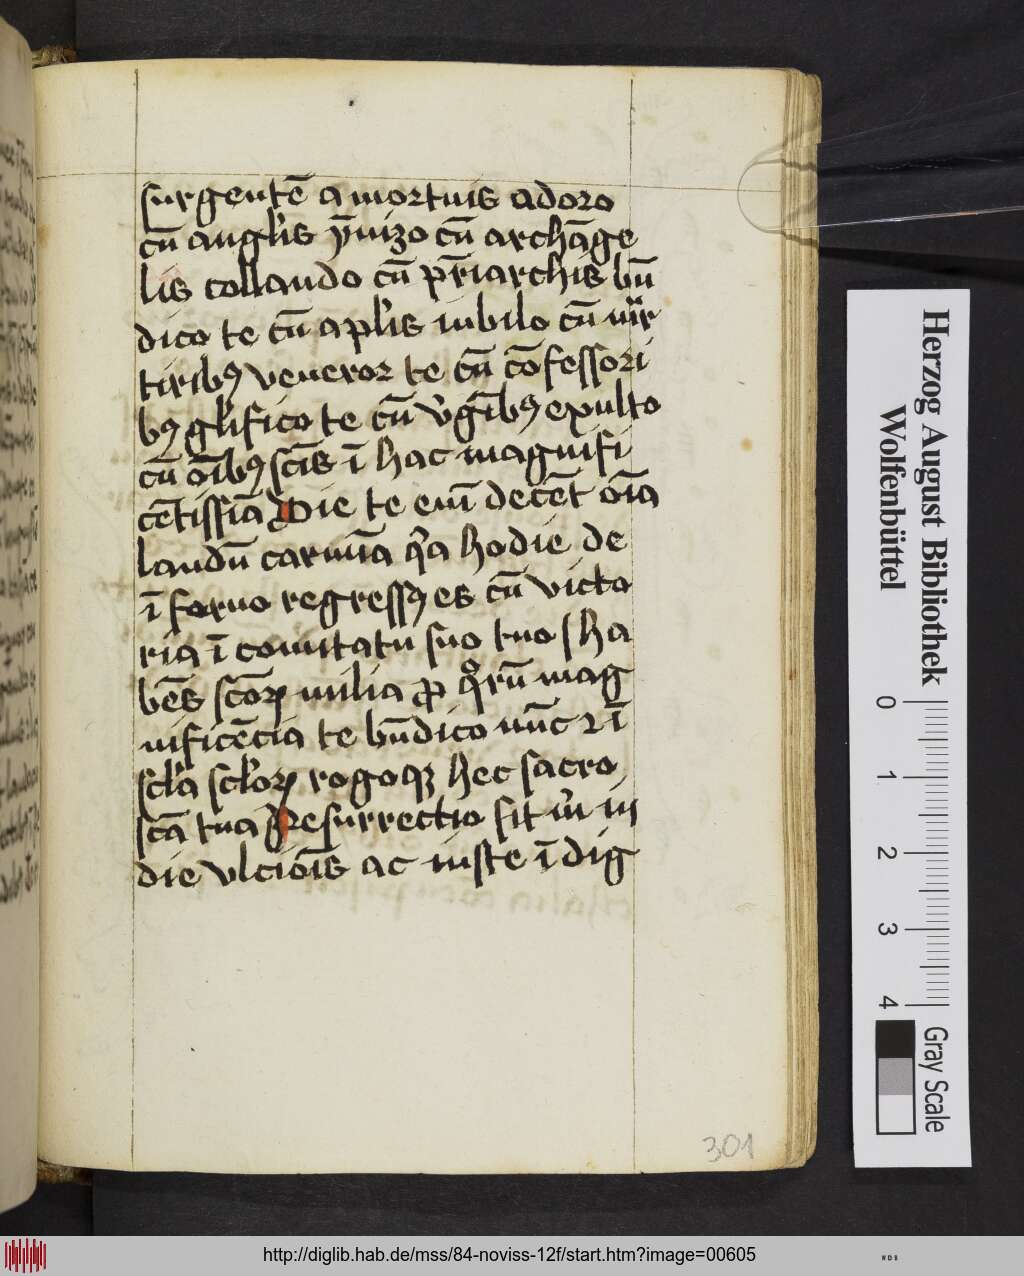 surgentē a mortuis adoro
cū angl'is ȳnizo cū archāge
lis collaudo cū pr̄iarchis bn̄
dico te cū apl'is iubilo cū mr̄
tiribꝰ veneror te cū cōfessori
bꝰ gl'ifico te cū v'gībꝰ exulto
cū oībꝰ scīs ī hac magnifi
cētissīa Die te em̄ decēt oīa
laudū carmīa q̄a hodie de
ī feruo regressꝰ es cū victo
ria ī comitatu suo tuo / ha
bēs scōꝝ milia ꝓ qͦrū mag
nificēcia te bn̄dico nūc ⁊ ī
scl'a scl'oꝝ rogoqꝫ hec sacro
scā tua Resurrectio sit m̄ in
die vlciōis ac iuste ī dig
301
Herzog August Bibliothek
Wolfenbüttel
0 1 2 3 4
Gray Scale
http://diglib.hab.de/mss/84-noviss-12f/start.htm?image=00605